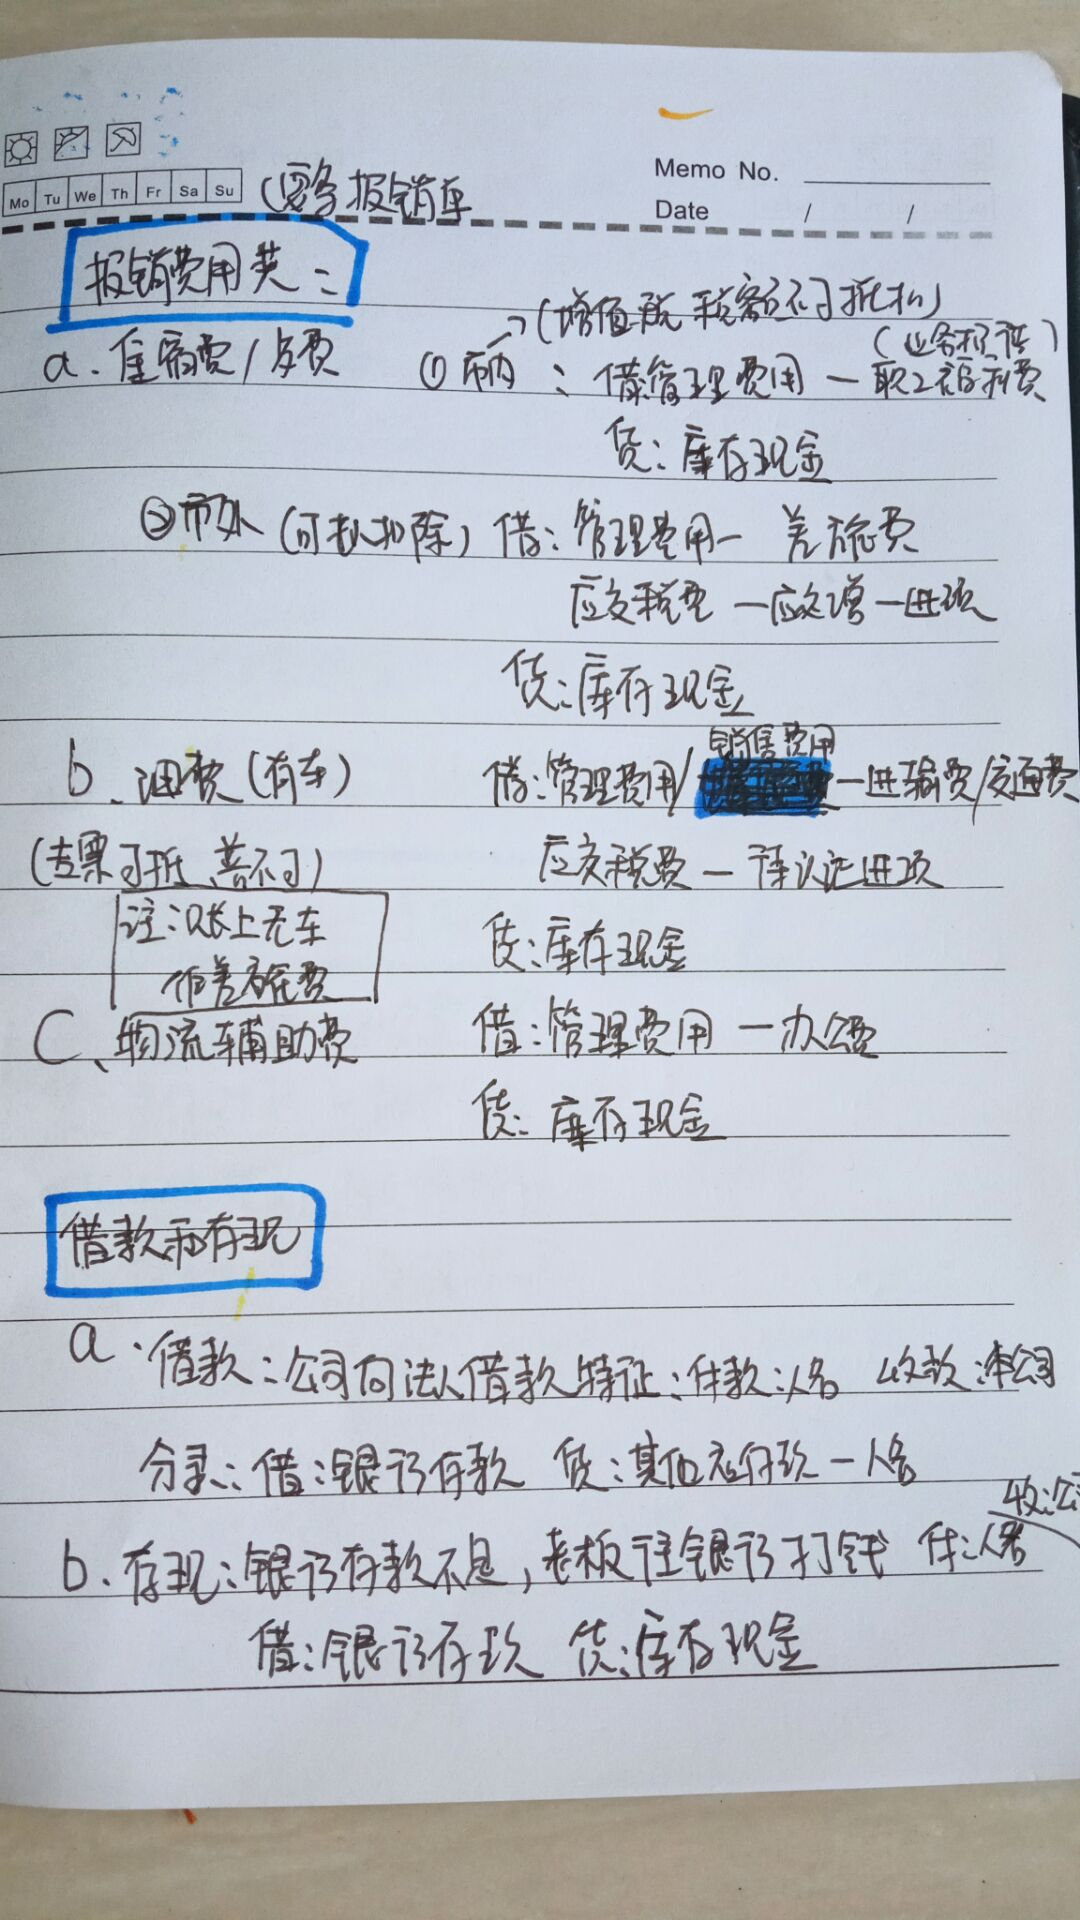 Memo No.
Mo Tu We Th Fr Sa Su
(要多报销单
Date / /
报销费用类:
(增值税税额不可抵扣)
(业务招待)
a. 住宿费/房费 ① 市内: 借:管理费用—职工福利费
贷:库存现金
②市外(可抵扣除) 借:管理费用— 差旅费
应交税费—应交增—进项
贷:库存现金
销售费用
b、油费(有车) 借:管理费用/ —运输费/交通费
(专票可抵、普不可) 应交税费—待认证进项
注:账上无车 贷:库存现金
作差旅费
C、物流辅助费 借:管理费用—办公费
贷:库存现金
借款和存现
a.借款:公司向法人借款 特征:付款:人名 收款:本公司
分录:借:银行存款 贷:其他应付款—人名
收:公司
b.存现:银行存款不足,老板往银行打钱 付:人名
借:银行存款 贷:库存现金